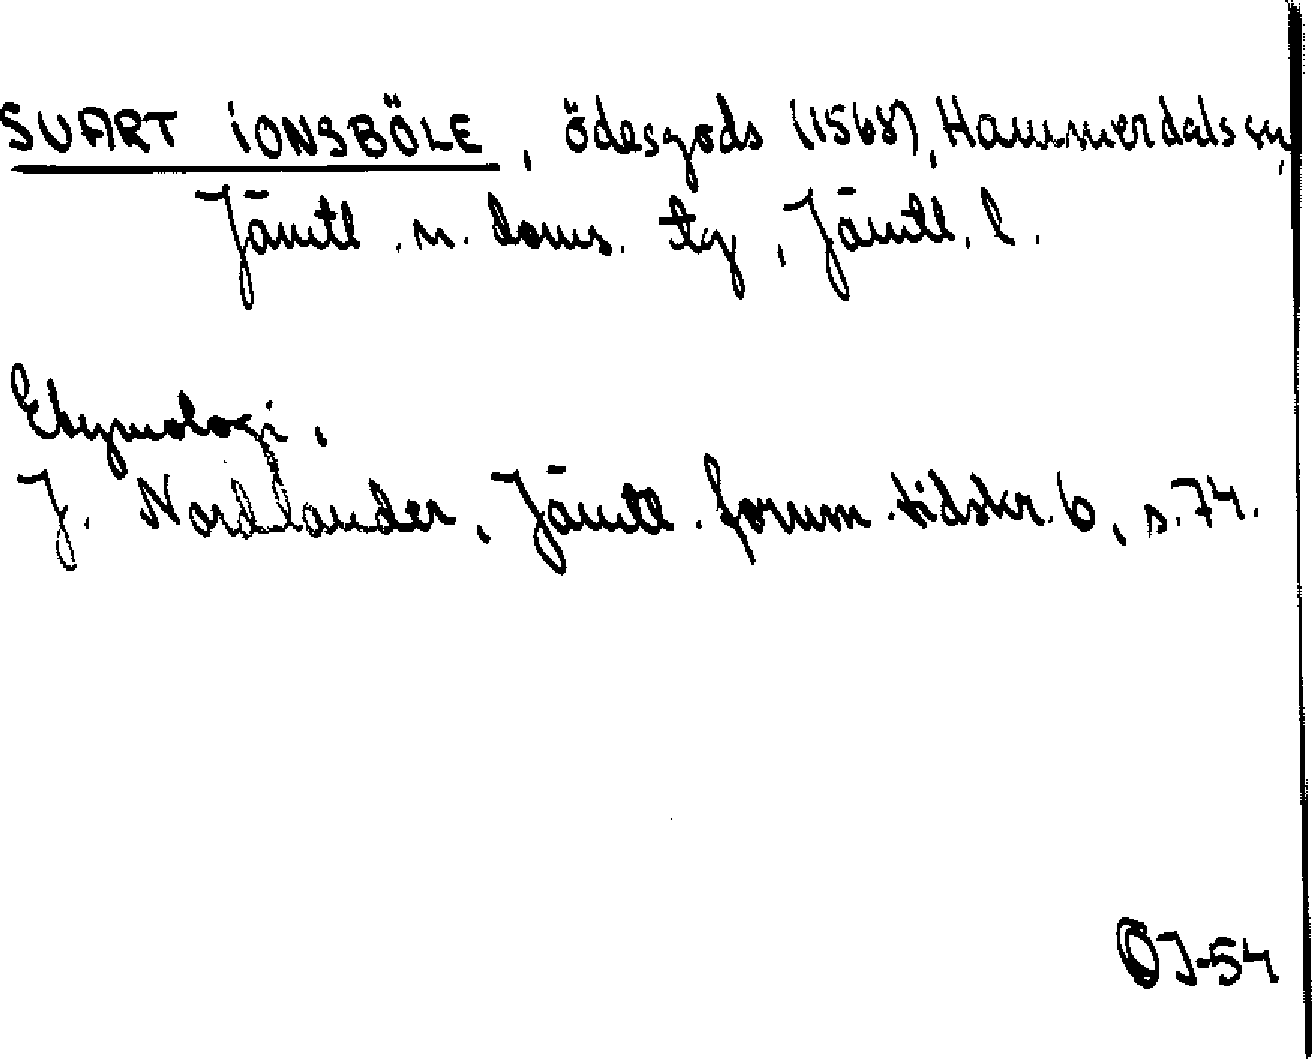 SUART IONSBÖLE, ödesgods (1568), Hammerdals sn,
Jämtl. n. doms. tg, Jämtl. l.
Etymologi.
J. Nordlander, Jämtl. fornm. tidskr. 6, s. 74.
OJ-54